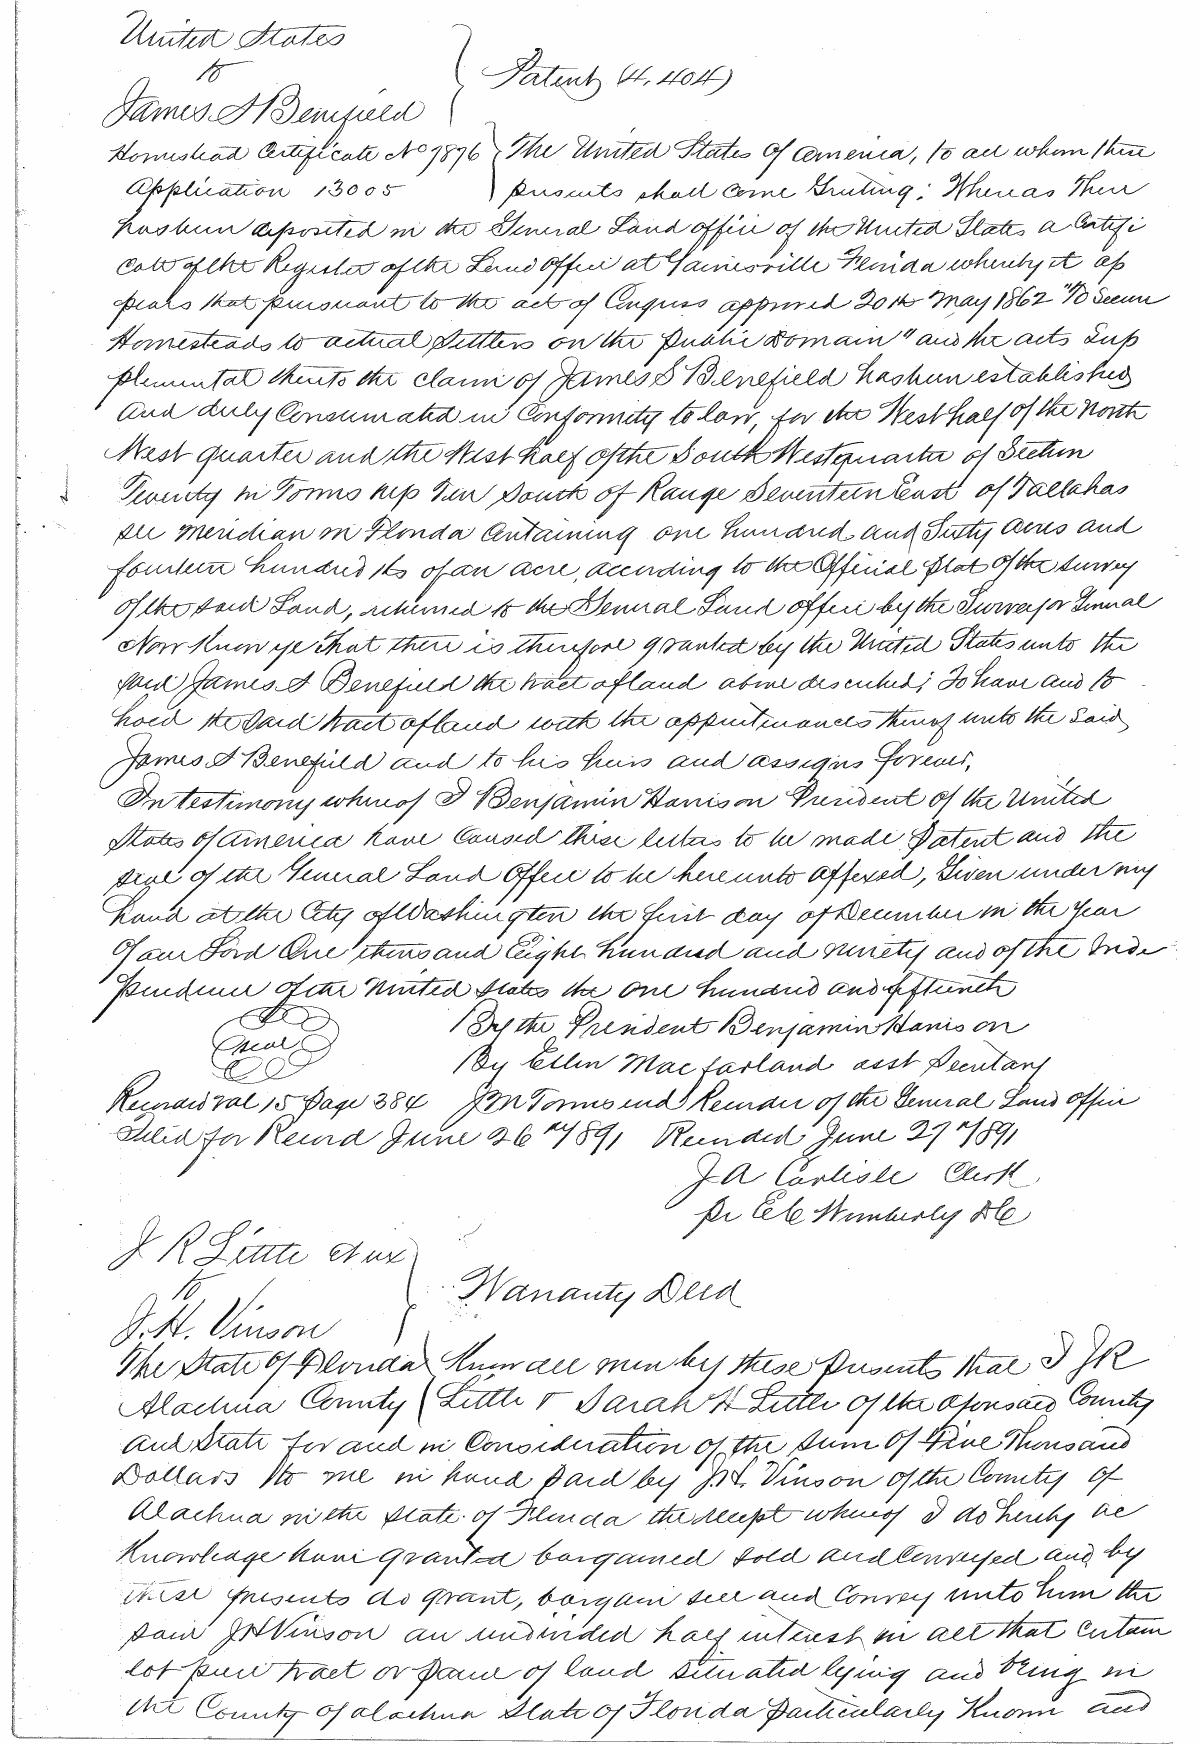 United States
to
Patent (4,404)
James S Benefield
Homestead Certificate No 7876 The United States of America, to all whom these
Application 13005 presents shall come Greeting: Whereas There
has been deposited in the General Land office of the United States a Certifi
cate of the Register of the Land Office at Gainesville Florida whereby it ap
pears that pursuant to the act of Congress approved 20th May 1862 "To Secure
Homesteads to actual Settlers on the Public Domain" and the acts Sup
plemental thereto the claim of James S Benefield has been established
and duly Consumated in Conformity to law, for the West half of the North
West quarter and the West half of the South West quarter of Section
Twenty in Towns hip Ten South of Range Seventeen East of Tallahas
see Meridian in Florida Containing one hundred and Sixty Acres and
fourteen hundredths of an acre, according to the Official Plat of the survey
of the said Land, returned to the General Land office by the Surveyor General
Now Know ye That there is therefore granted by the United States unto the
said James S Benefield the tract of land above described; To have and to
hold the said tract of land with the appurtenances thereof unto the said
James S Benefield and to his heirs and assigns forever,
In testimony whereof I Benjamin Harrison President of the United
States of America have Caused these letters to be made Patent and the
seal of the General Land Office to be hereunto affixed, Given under my
hand at the City of Washington the first day of December in the Year
of our Lord One thousand Eight hundred and ninety and of the Inde
pendence of the United States the one hundred and fifteenth
By the President Benjamin Harrison
Seal
By Ellen Macfarland asst Secretary
Record vol 15 Page 384 J M Townsend Recorder of the General Land office
Filed for Record June 26th 1891 Recorded June 27th 1891
J A Carlisle Clerk
Pr E C Wimberly DC
J R Little et ux
to
Warranty Deed
J. H. Vinson
The State of Florida Know all men by these Presents that I J R
Alachua County Little & Sarah H Little of the aforesaid County
and State for and in Consideration of the sum of Five Thousand
Dollars to me in hand Paid by J.H. Vinson of the County of
Alachua in the state of Florida the receipt whereof I do hereby ac
Knowledge have granted bargained sold and Conveyed and by
these presents do grant, bargain sell and Convey unto him the
said J H Vinson an undivided half interest in all that certain
lot piece tract or parcel of land situated lying and being in
the County of Alachua State of Florida particularly Known and